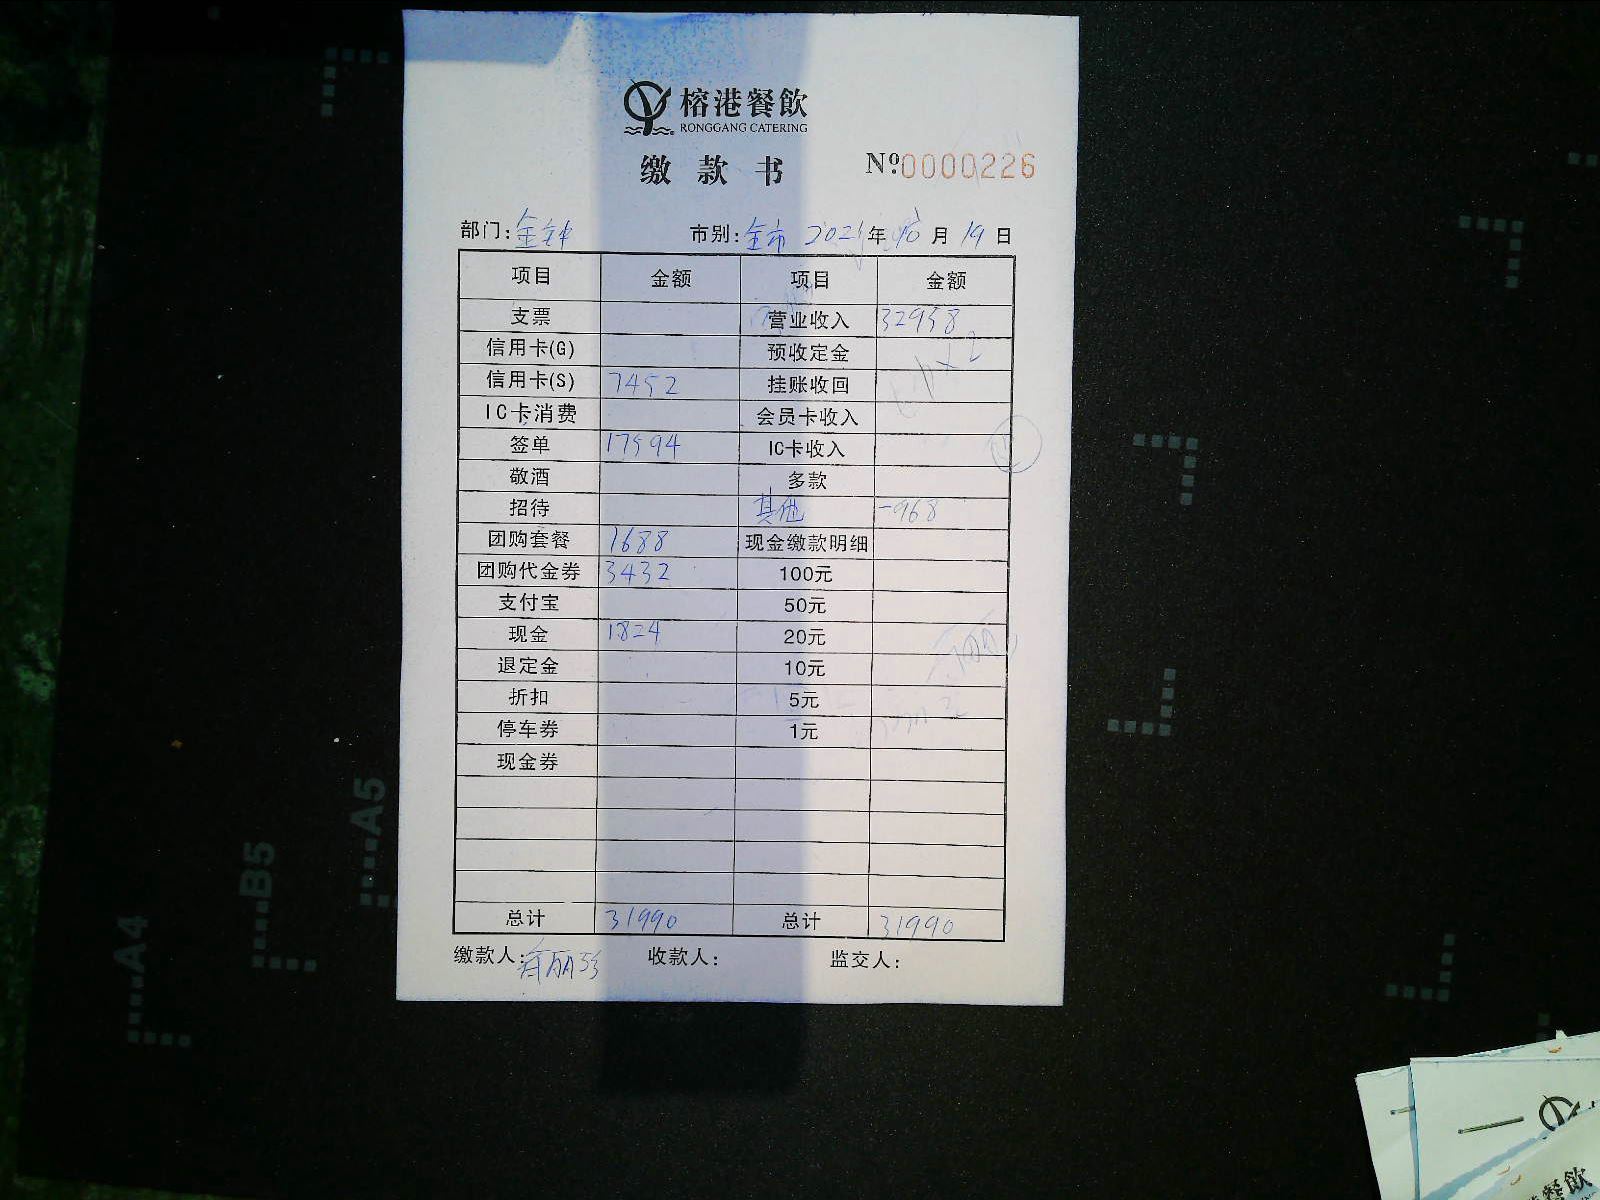 榕港餐飲
RONGGANG CATERING
缴款书 Nº 0000226
部门: 金钟 市别: 全市 2021年 10月 19日
项目 金额 项目 金额
支票 营业收入 32958
信用卡(G) 预收定金
信用卡(S) 7452 挂账收回
IC卡消费 会员卡收入
签单 17594 IC卡收入
敬酒 多款
招待 其他 -968
团购套餐 1688 现金缴款明细
团购代金券 3432 100元
支付宝 50元
现金 1824 20元
退定金 10元
折扣 5元
停车券 1元
现金券
总计 31990 总计 31990
缴款人: 收款人: 监交人:
A4
B5
A5
餐飲